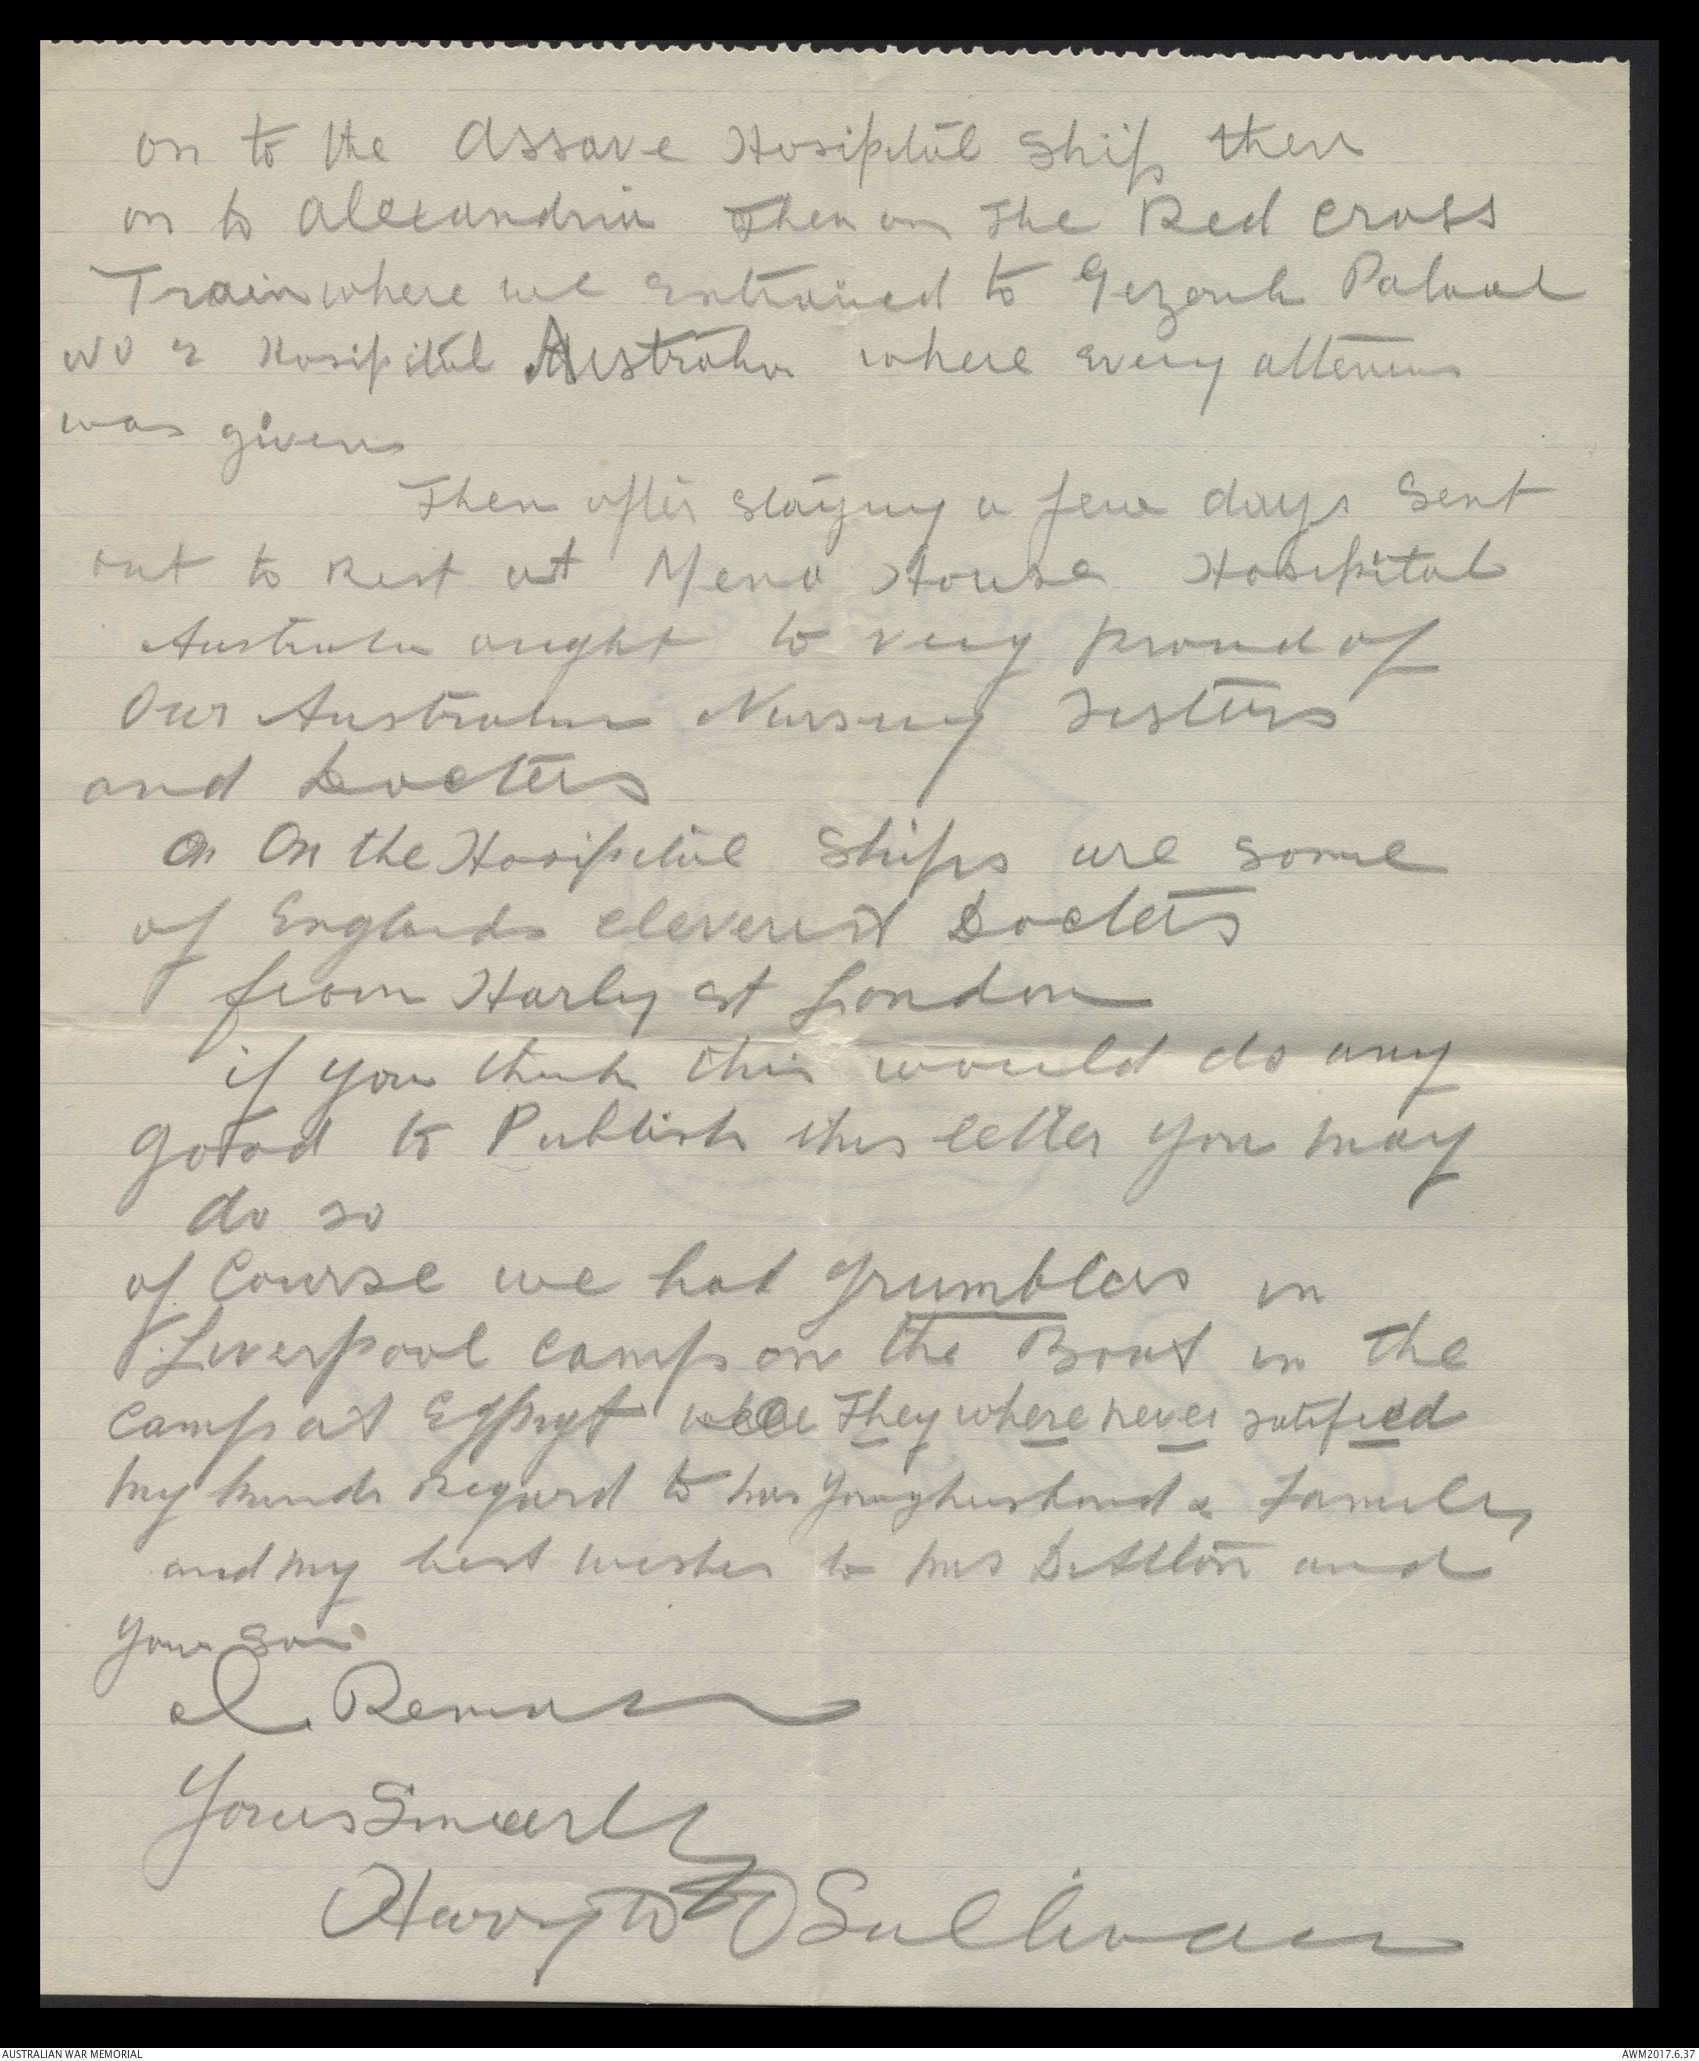 on to the Assave Hosipital Ship then
on to Alexandria Then on The Red Cross
Train where we entrained to Gezerah Palaal
NO 2 Hosipital Australia where every attention
was given
Then after staying a few days Sent
out to Rest at Mena House Hosipital
Australia ought to very proud of
Our Australian Nursing Sisters
and Docters
On the Hosipital Ships are some
of Englands cleverest Docters
from Harly St London
if you think this would do any
good to Publish this letter you may
do so
of Course we had grumblers in
Liverpool Camp on the Boat in the
Camp at Egypt They where never satified
My kinds Regard to Mrs Younghusband & Family
and my best wishes to Mrs Dutton and
your son
I Remain
Yours Sincerly
Harry W O Sullivan
AUSTRALIAN WAR MEMORIAL
AWM2017.6.37